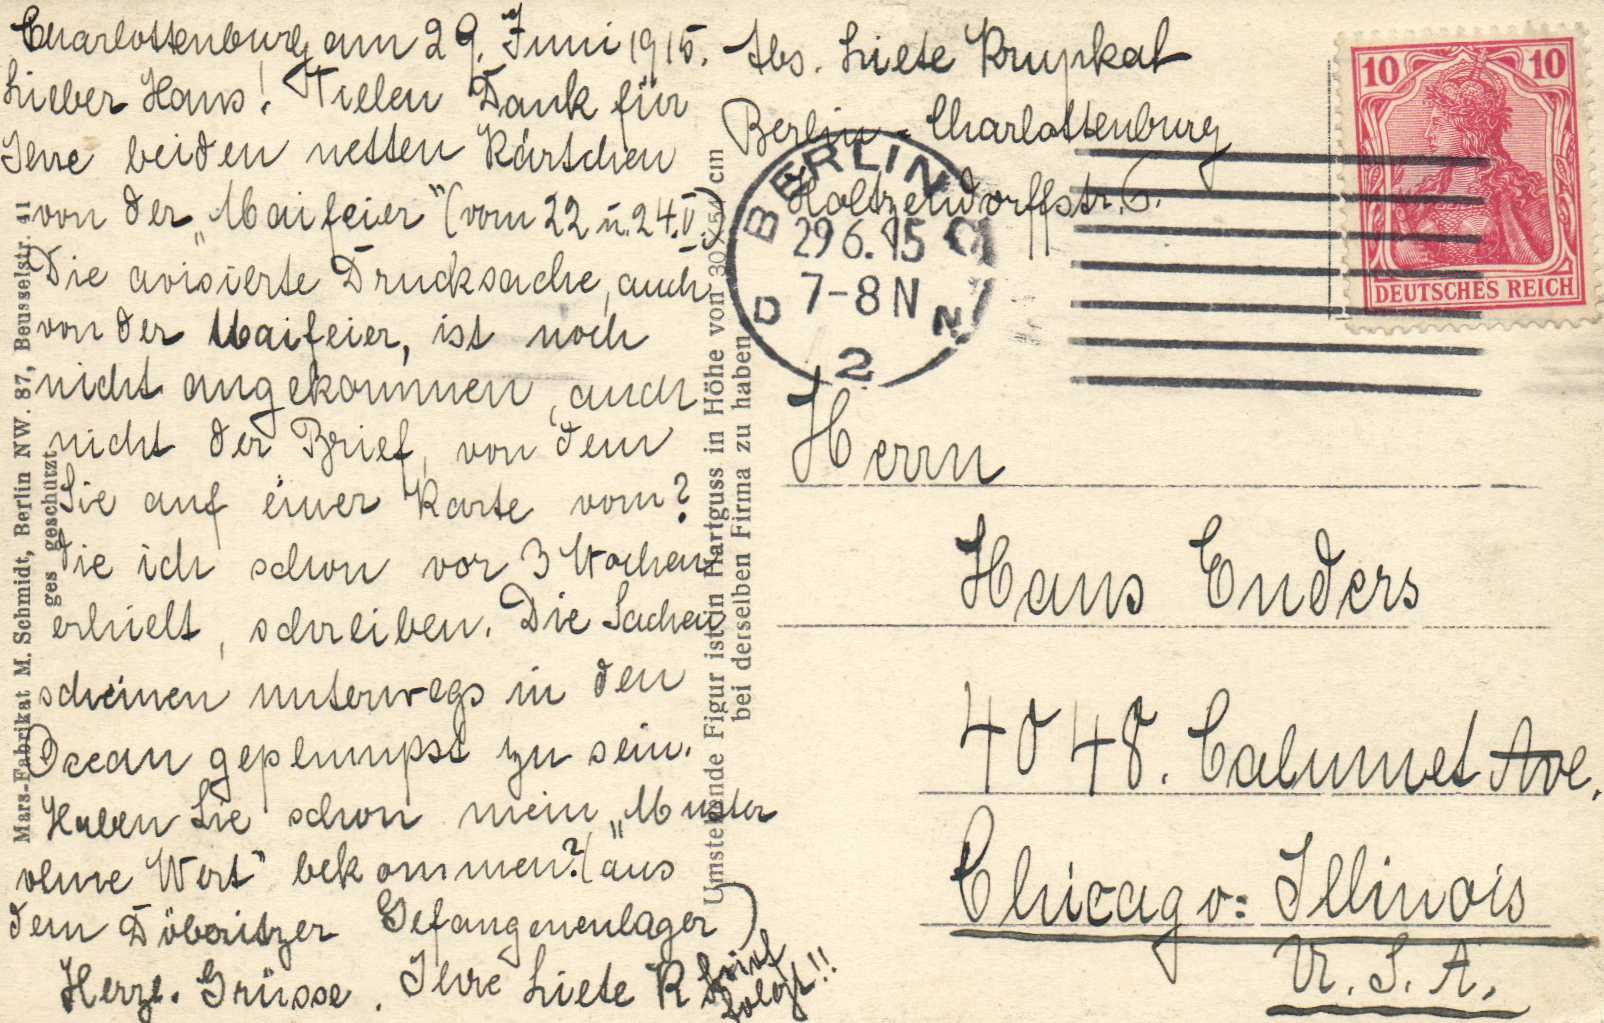 Charlottenburg am 29. Juni 1915.
Lieber Hans! Vielen Dank für
Ihre beiden netten Kärtchen
von der „Maifeier" (vom 22 u. 24.V.)
Die avisierte Drucksache, auch
von der Maifeier, ist noch
nicht angekommen, auch
nicht der Brief, von dem
Sie auf einer Karte vom?
die ich schon vor 3 Wochen
erhielt, schreiben. Die Sachen
scheinen unterwegs in den
Ocean geplumpst zu sein.
Haben Sie schon mein „Muster
ohne Wert" bekommen? (aus
dem Döberitzer Gefangenenlager)
Herzl. Grüsse. Ihre Liete K
Brief
folgt!!
Mars-Fabrikat M. Schmidt, Berlin NW. 87, Beusselstr. 41
ges geschützt
Umstehende Figur ist in Hartguss in Höhe von 30 x 54 cm
bei derselben Firma zu haben
Abs. Liete Krupkat
Berlin-Charlottenburg
Holtzendorffstr.
BERLIN C
29 6. 15
7-8 N
D N
2
10 10
DEUTSCHES REICH
Herrn
Hans Enders
4048. Calumet Ave.
Chicago: Illinois
U. S. A.